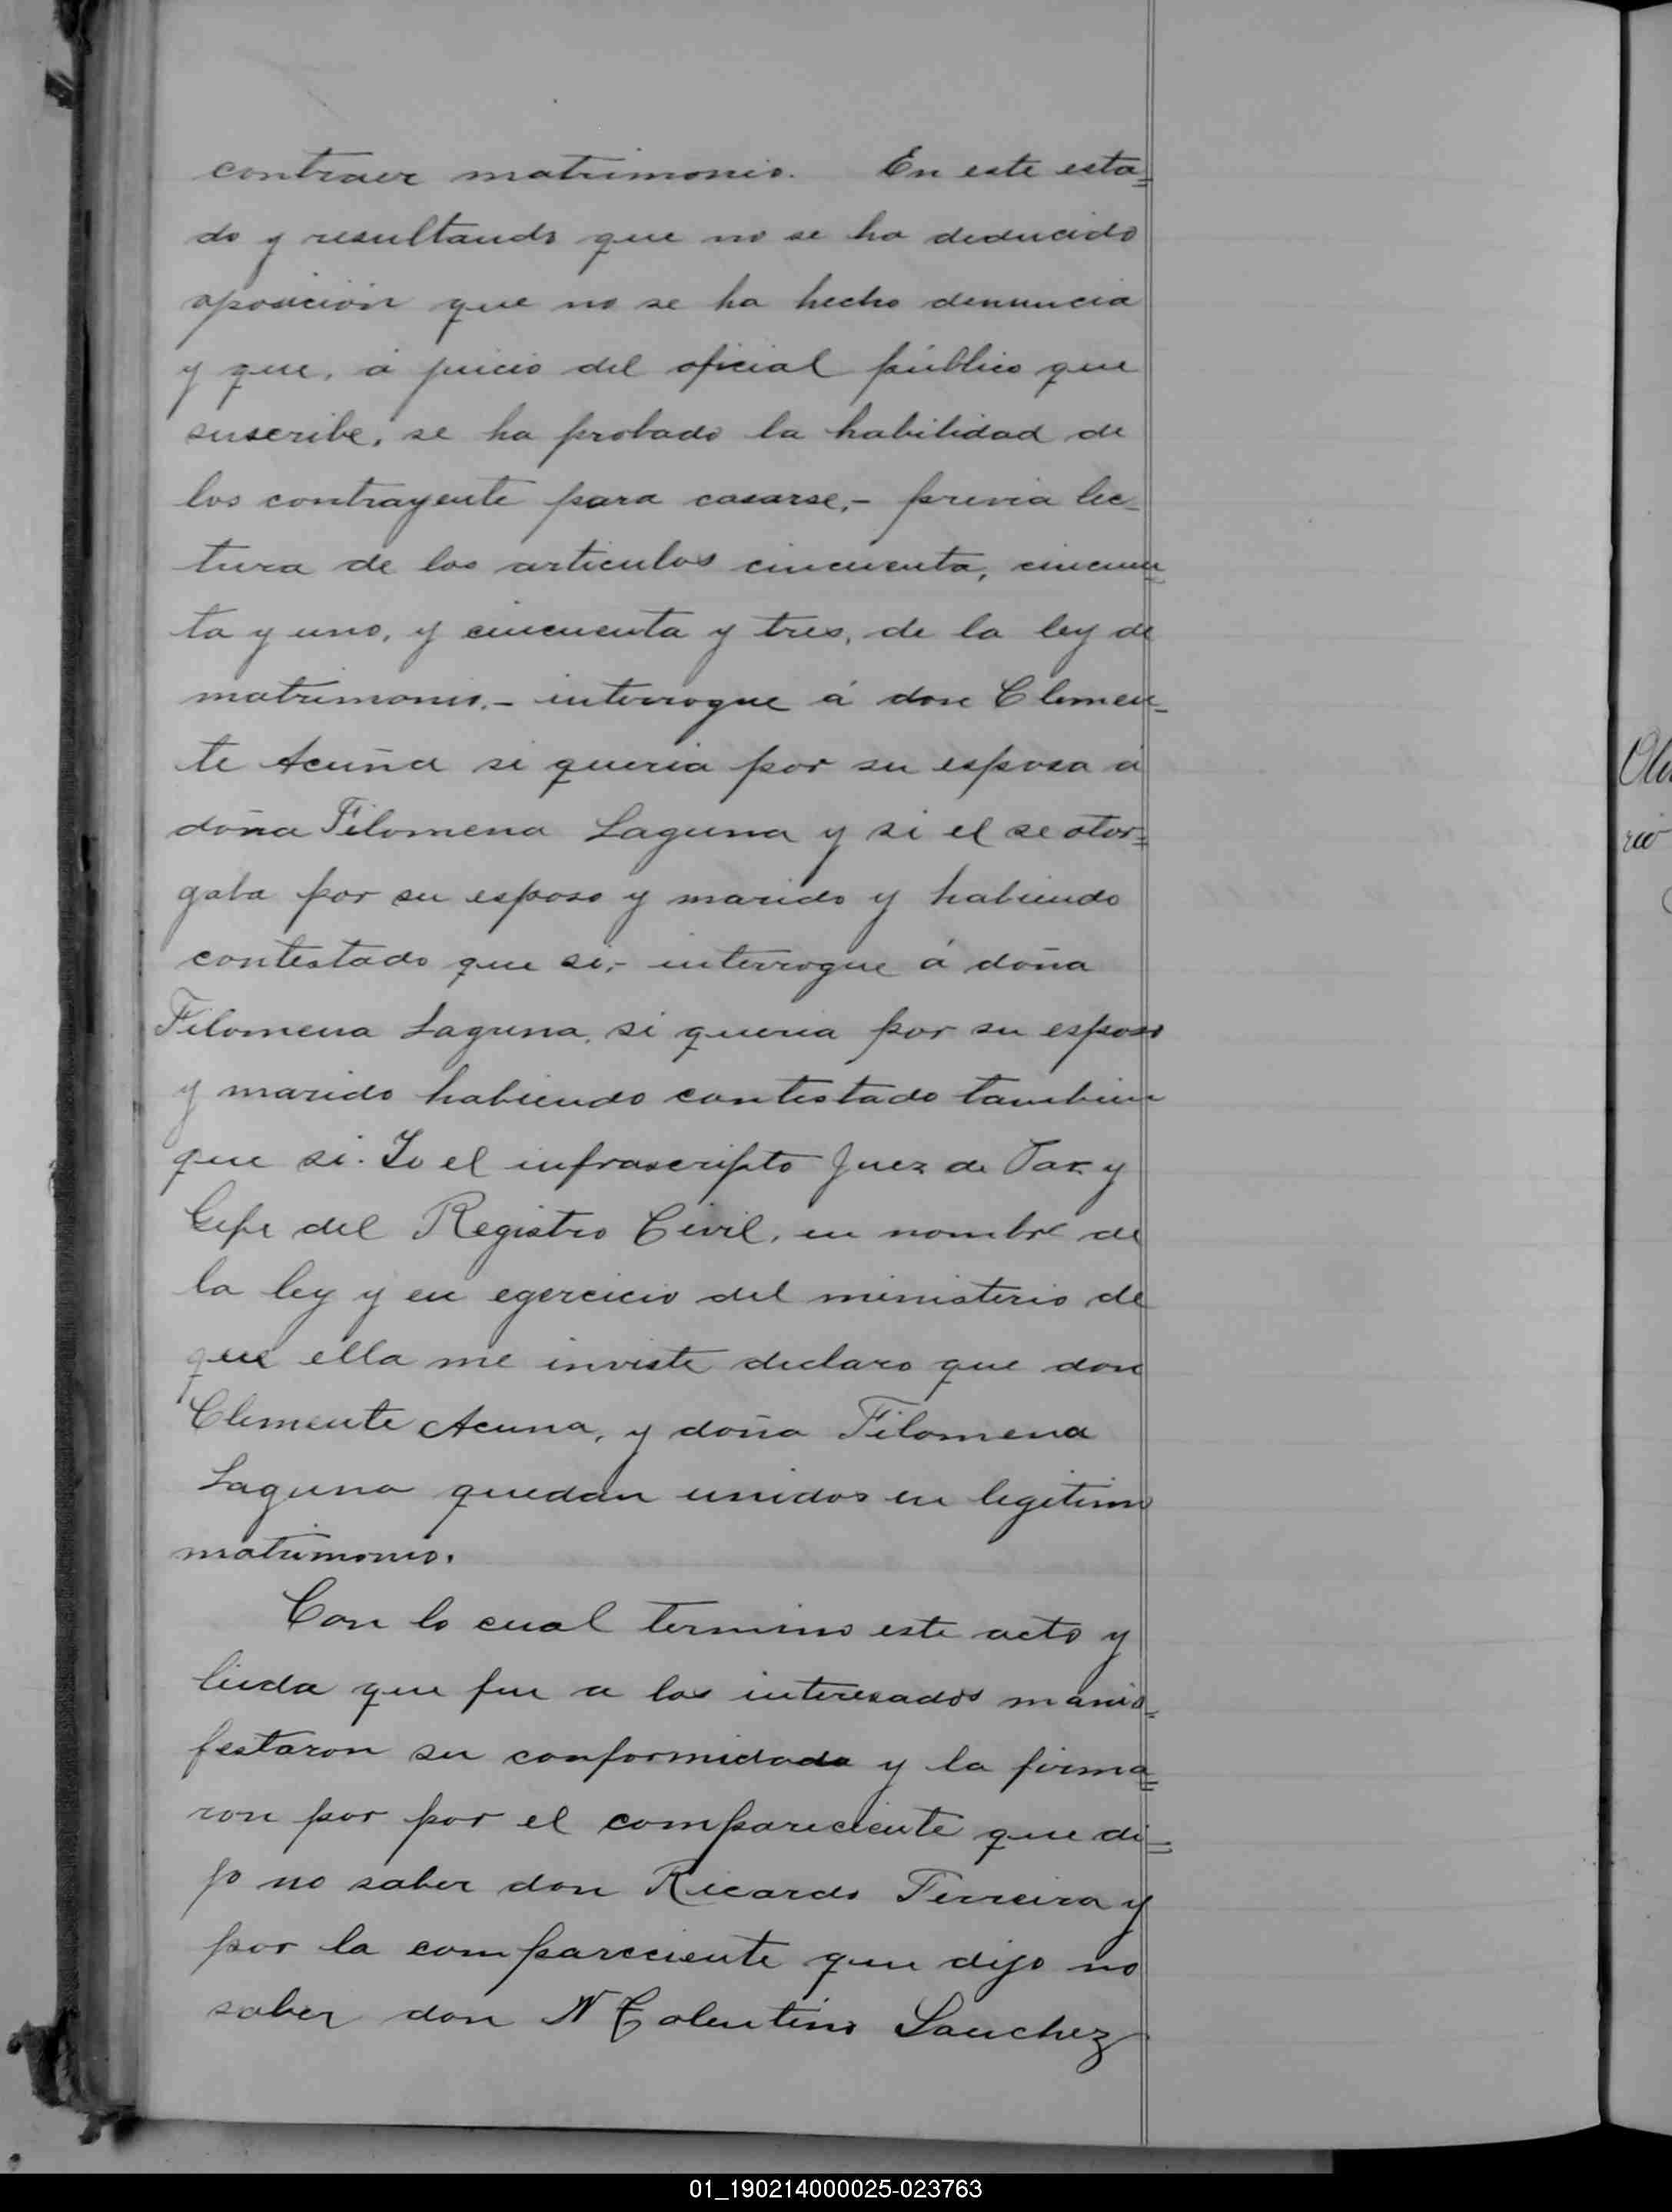 contraer matrimonio. En este esta=
do y resultando que no se ha deducido
oposición que no se ha hecho denuncia
y que, á juicio del oficial público que
suscribe, se ha probado la habilidad de
los contrayente para casarse,- previa lec=
tura de los articulos cincuenta, cincuen
ta y uno, y cincuenta y tres, de la ley de
matrimonio.- interrogue á don Clemen=
te Acuña si queria por su esposa á
doña Filomena Laguna y si el se otor=
gaba por su esposo y marido y habiendo
contestado que si,- interrogue á doña
Filomena Laguna, si queria por su esposo
y marido habiendo contestado tambien
que si. Yo el infrascripto Juez de Paz y
Gefe del Registro Civil, en nombre de
la ley y en egercicio del ministerio de
que ella me inviste declaro que don
Clemente Acuna, y doña Filomena
Laguna quedan unidos en legitimo
matrimonio.
Con lo cual termino este acto y
leida que fue a los interesados manis=
festaron su conformidada y la firma=
ron por por el compareciente que di=
jo no saber don Ricardo Ferreira y
por la compareciente que dijo no
saber don N Tolentino Sanchez
Oli
rio
01_190214000025-023763